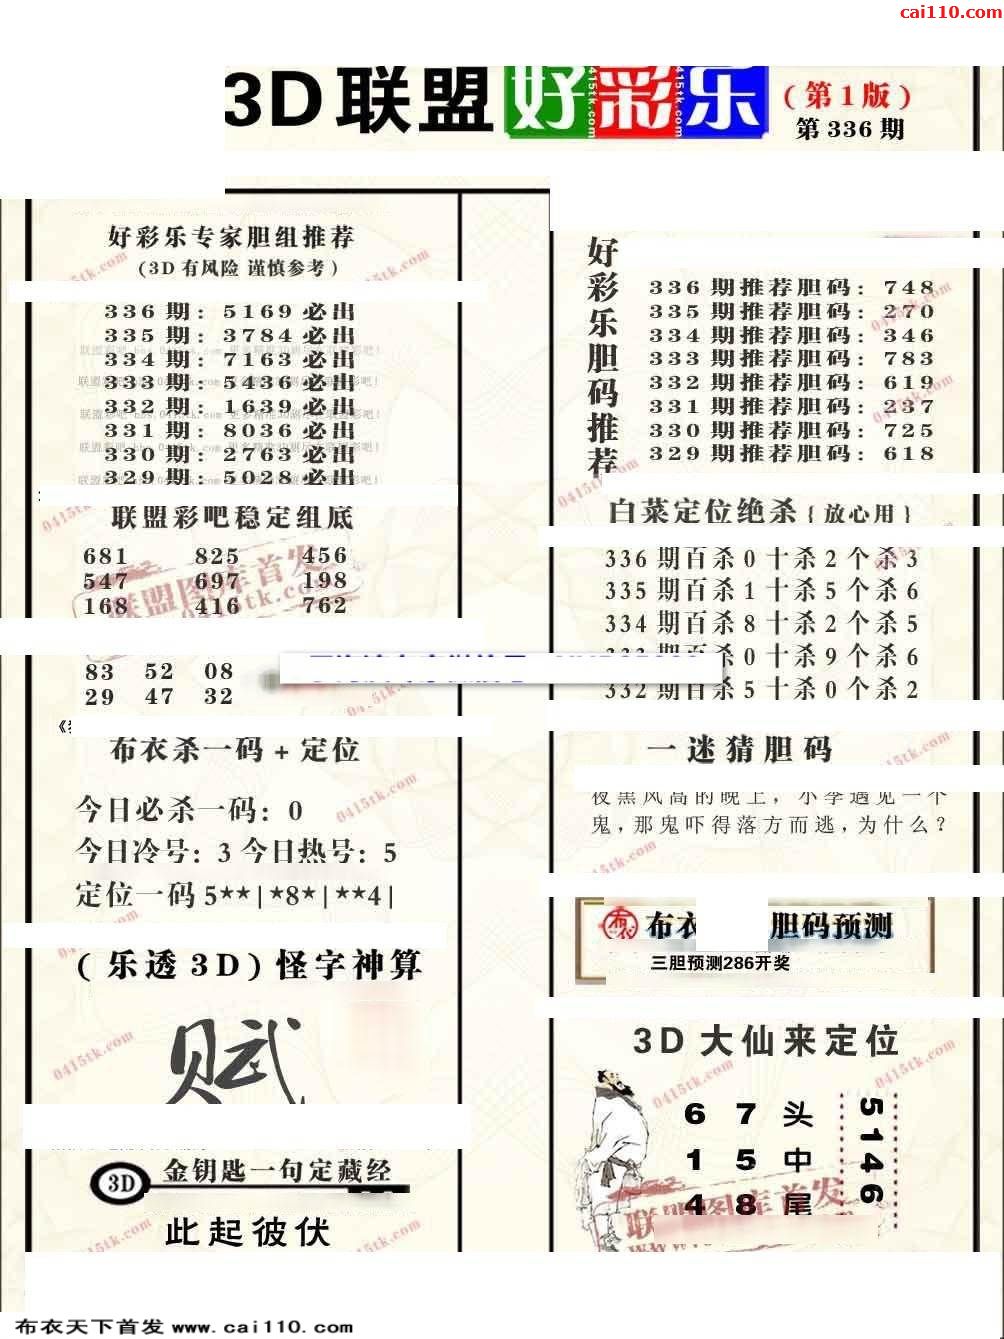 cai110.com
3D联盟好彩乐
(第1版)
第336期
好彩乐专家胆组推荐
(3D有风险 谨慎参考)
336期: 5169必出
335期: 3784必出
334期: 7163必出
333期: 5436必出
332期: 1639必出
331期: 8036必出
330期: 2763必出
329期: 5028必出
联盟彩吧稳定组底
681 825 456
547 697 198
168 416 762
83 52 08
29 47 32
布衣杀一码+定位
今日必杀一码: 0
今日冷号: 3 今日热号: 5
定位一码 5**|*8*|**4|
(乐透3D)怪字神算
赋
3D 金钥匙一句定藏经
此起彼伏
好彩乐胆码推荐
336期推荐胆码: 748
335期推荐胆码: 270
334期推荐胆码: 346
333期推荐胆码: 783
332期推荐胆码: 619
331期推荐胆码: 237
330期推荐胆码: 725
329期推荐胆码: 618
白菜定位绝杀{放心用}
336期百杀0十杀2个杀3
335期百杀1十杀5个杀6
334期百杀8十杀2个杀5
杀0十杀9个杀6
332期百杀5十杀0个杀2
一迷猜胆码
夜黑风高的晚上,小李遇见一个
鬼,那鬼吓得落方而逃,为什么?
布衣 胆码预测
三胆预测286开奖
3D大仙来定位
6 7 头
1 5 中
4 8 尾
5146
联盟图库首发
布衣天下首发 www.cai110.com